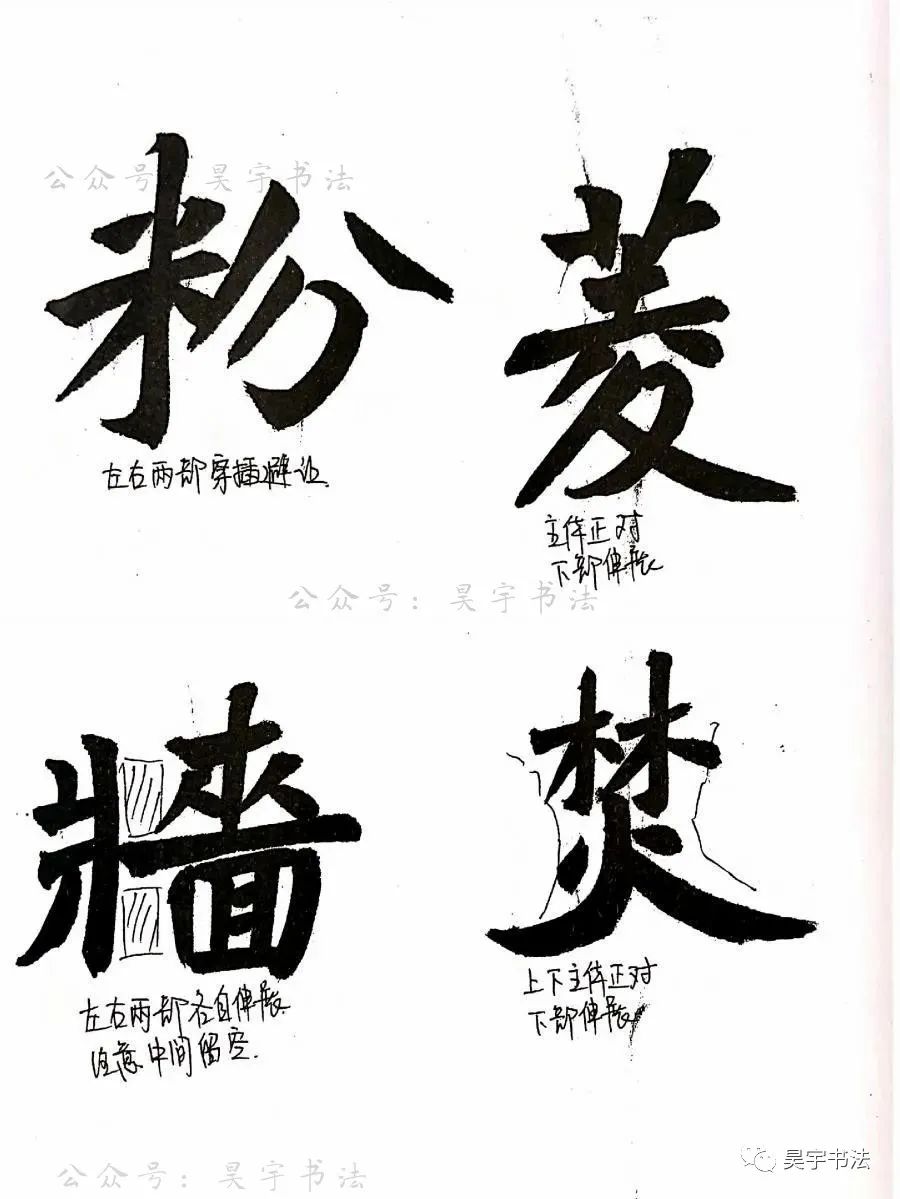 公众号：昊宇书法
粉
菱
左右两部穿插避让.
主体正对
下部伸展
公众号：昊宇书法
牆
焚
左右两部各自伸展
注意中间留空.
上下主体正对
下部伸展
公众号：昊宇书法
昊宇书法